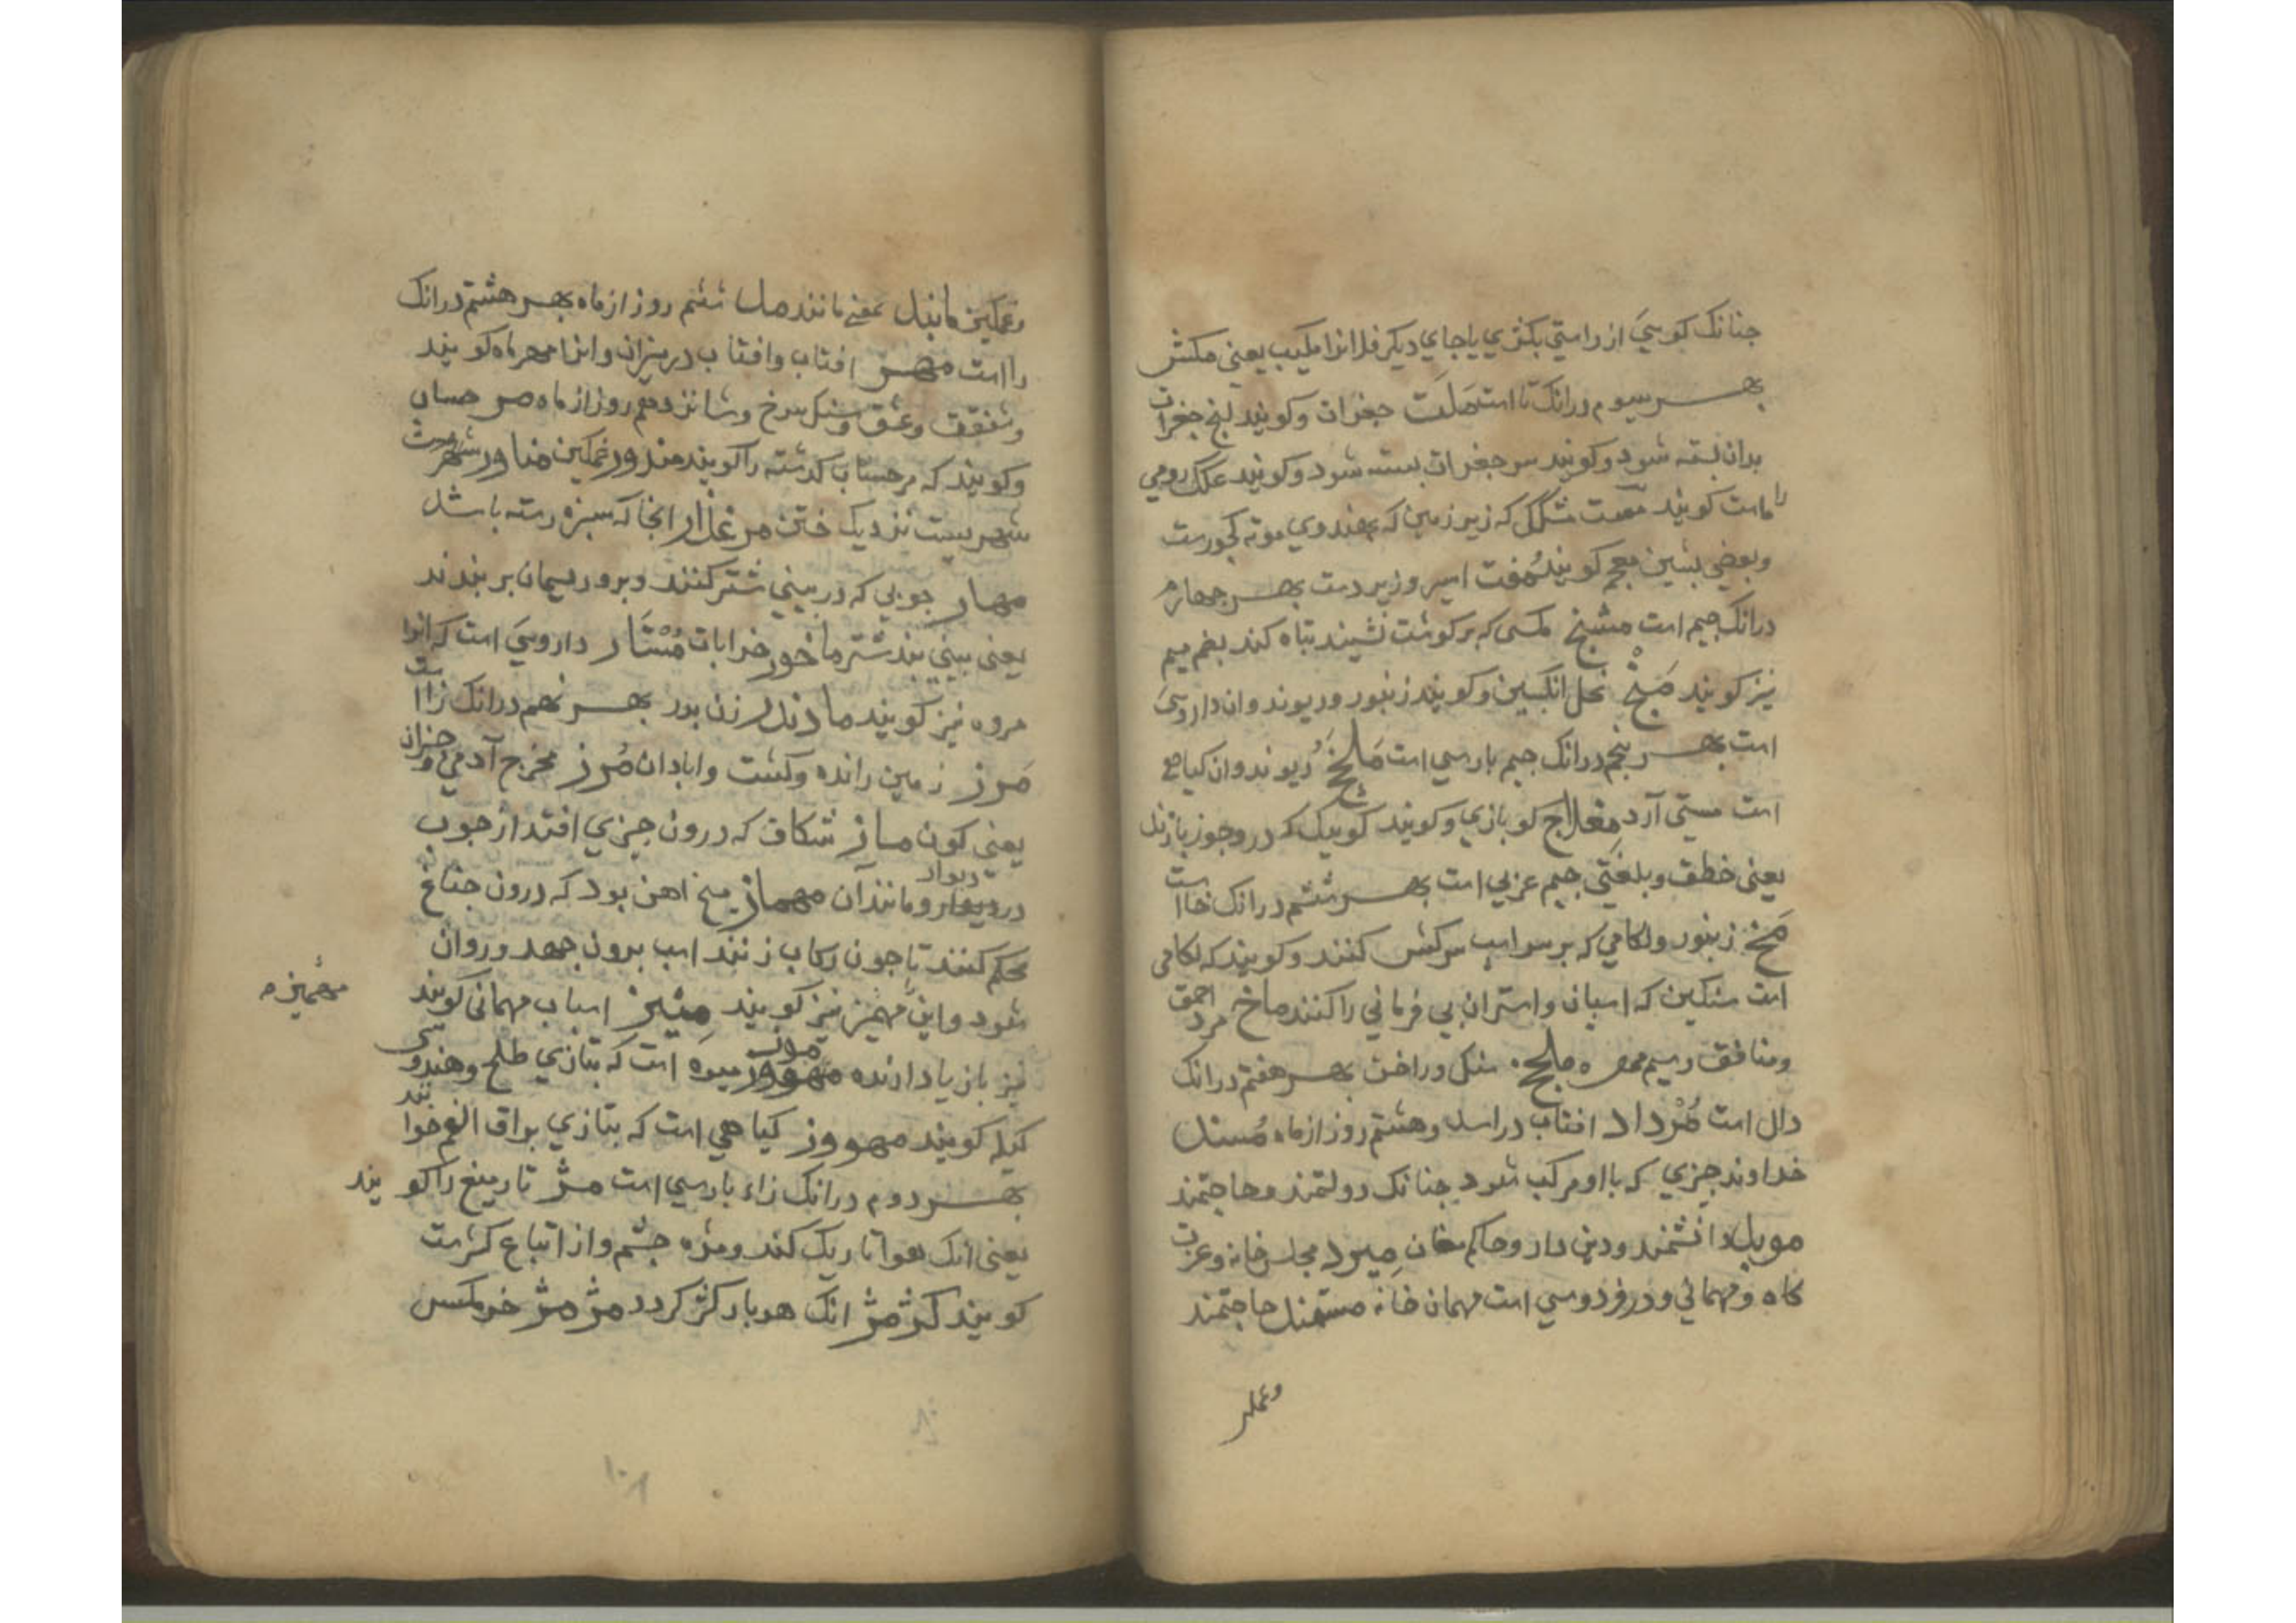 جنانک کویی از راستی بکژی یا جای دیکر فلانرا مکیب یعنی مکش
بهر سیوم درانک تا است مَلَت جغرات وکویند لنج جغرات
بدان بسته شود وکویند سر جغرات بسته شود وکویند علک رومی
را ماست کویند که زیر زمین که بهندوی موته کویند
وبعضی بشین معجم کویند مُفت اسیر وزیردست بهر جهارم
درانک جیم است مشنج مکسی که برکوشت نشیند تباه کند بضم میم
نیز کویند مَنْج نحل انکبین وکویند زنبور وریوند وان داروییَ
است بهر پنجم درانک جیم بارسی است دیوند وان کیاهی
است مستی آرد مغلاج کو بازی وکویند کوییک که درو جوز بازند
یعنی خطق وبلغتی جیم عربی است بهر ششم درانک خا است
مَخ زنبور ولکامی که بر سر اسب سرکش کنند وکویند که لکامی
است سنکین که اسپان واستران بی فرمانی را کنند ماخ مرد احمق
ومنافق وسیم بهر هفتم درانک
دال است مُرْداد افتاب دراسد وهشتم روز از ماه مُسند
خداوند جیزی که با او مرکب شود جنانک دولتمند وحاجتمند
موبد دانشمند ودین دار وحاکم مغان میرد مجلس خانه وعزت
کاه ومهمانی ودر فردوسی است مهمان خانه مستمند حاجتمند
وغمکین
وغمکین مانند بمعنی مانند ششم روز از ماه بهر هشتم درانک
را است مهر افتاب وافتاب در میزان وانرا مهر ماه کویند
وشفقت وعشق وسنک سرخ وشانزدهم روز از ماه
وکویند که مر حساب کذشته را کویند مندور غمکین مناور شهریست
شهریست نزدیک ختن مرغزار انجا که سبزه رسته باشد
مهار جوبی که در بینی شتر کنند وبرو ریسمان بربندند
یعنی بینی بند شتر ماخور خرابات مُسْتَار داروییَ است که انرا
مروه نیز کویند مادندر زن بدر بهر نهم درانک زا است
مَرز زمین رانده وکشت وابادان مُرز مخرج آدمی وجزان
یعنی کون ماز شکاف که درون جیزی افتد از جوب
دیوار
در دیوار ومانند آن مهماز میخ اهن بود که درون جناغ
محکم کنند تا جون رکاب زنند اسب برون جهد وروان
شود واین مهمیز نیز کویند مِیز اسباب مهمانی کویند
مهمیزه
نیز باز یاد ارنده موز میوه است که بتازی طلح وهندوی
کیله کویند مهووز کیاهی است که بتازی براق الغم خوانند
بهر دوم درانک زاء بارسی است مژ تار میغ را کویند
یعنی انک هوا تاریک کند ومژه جشم واز اتباع کژست
کویند کژمژ انک هربار کژ کردد مژ مژ خرمکس